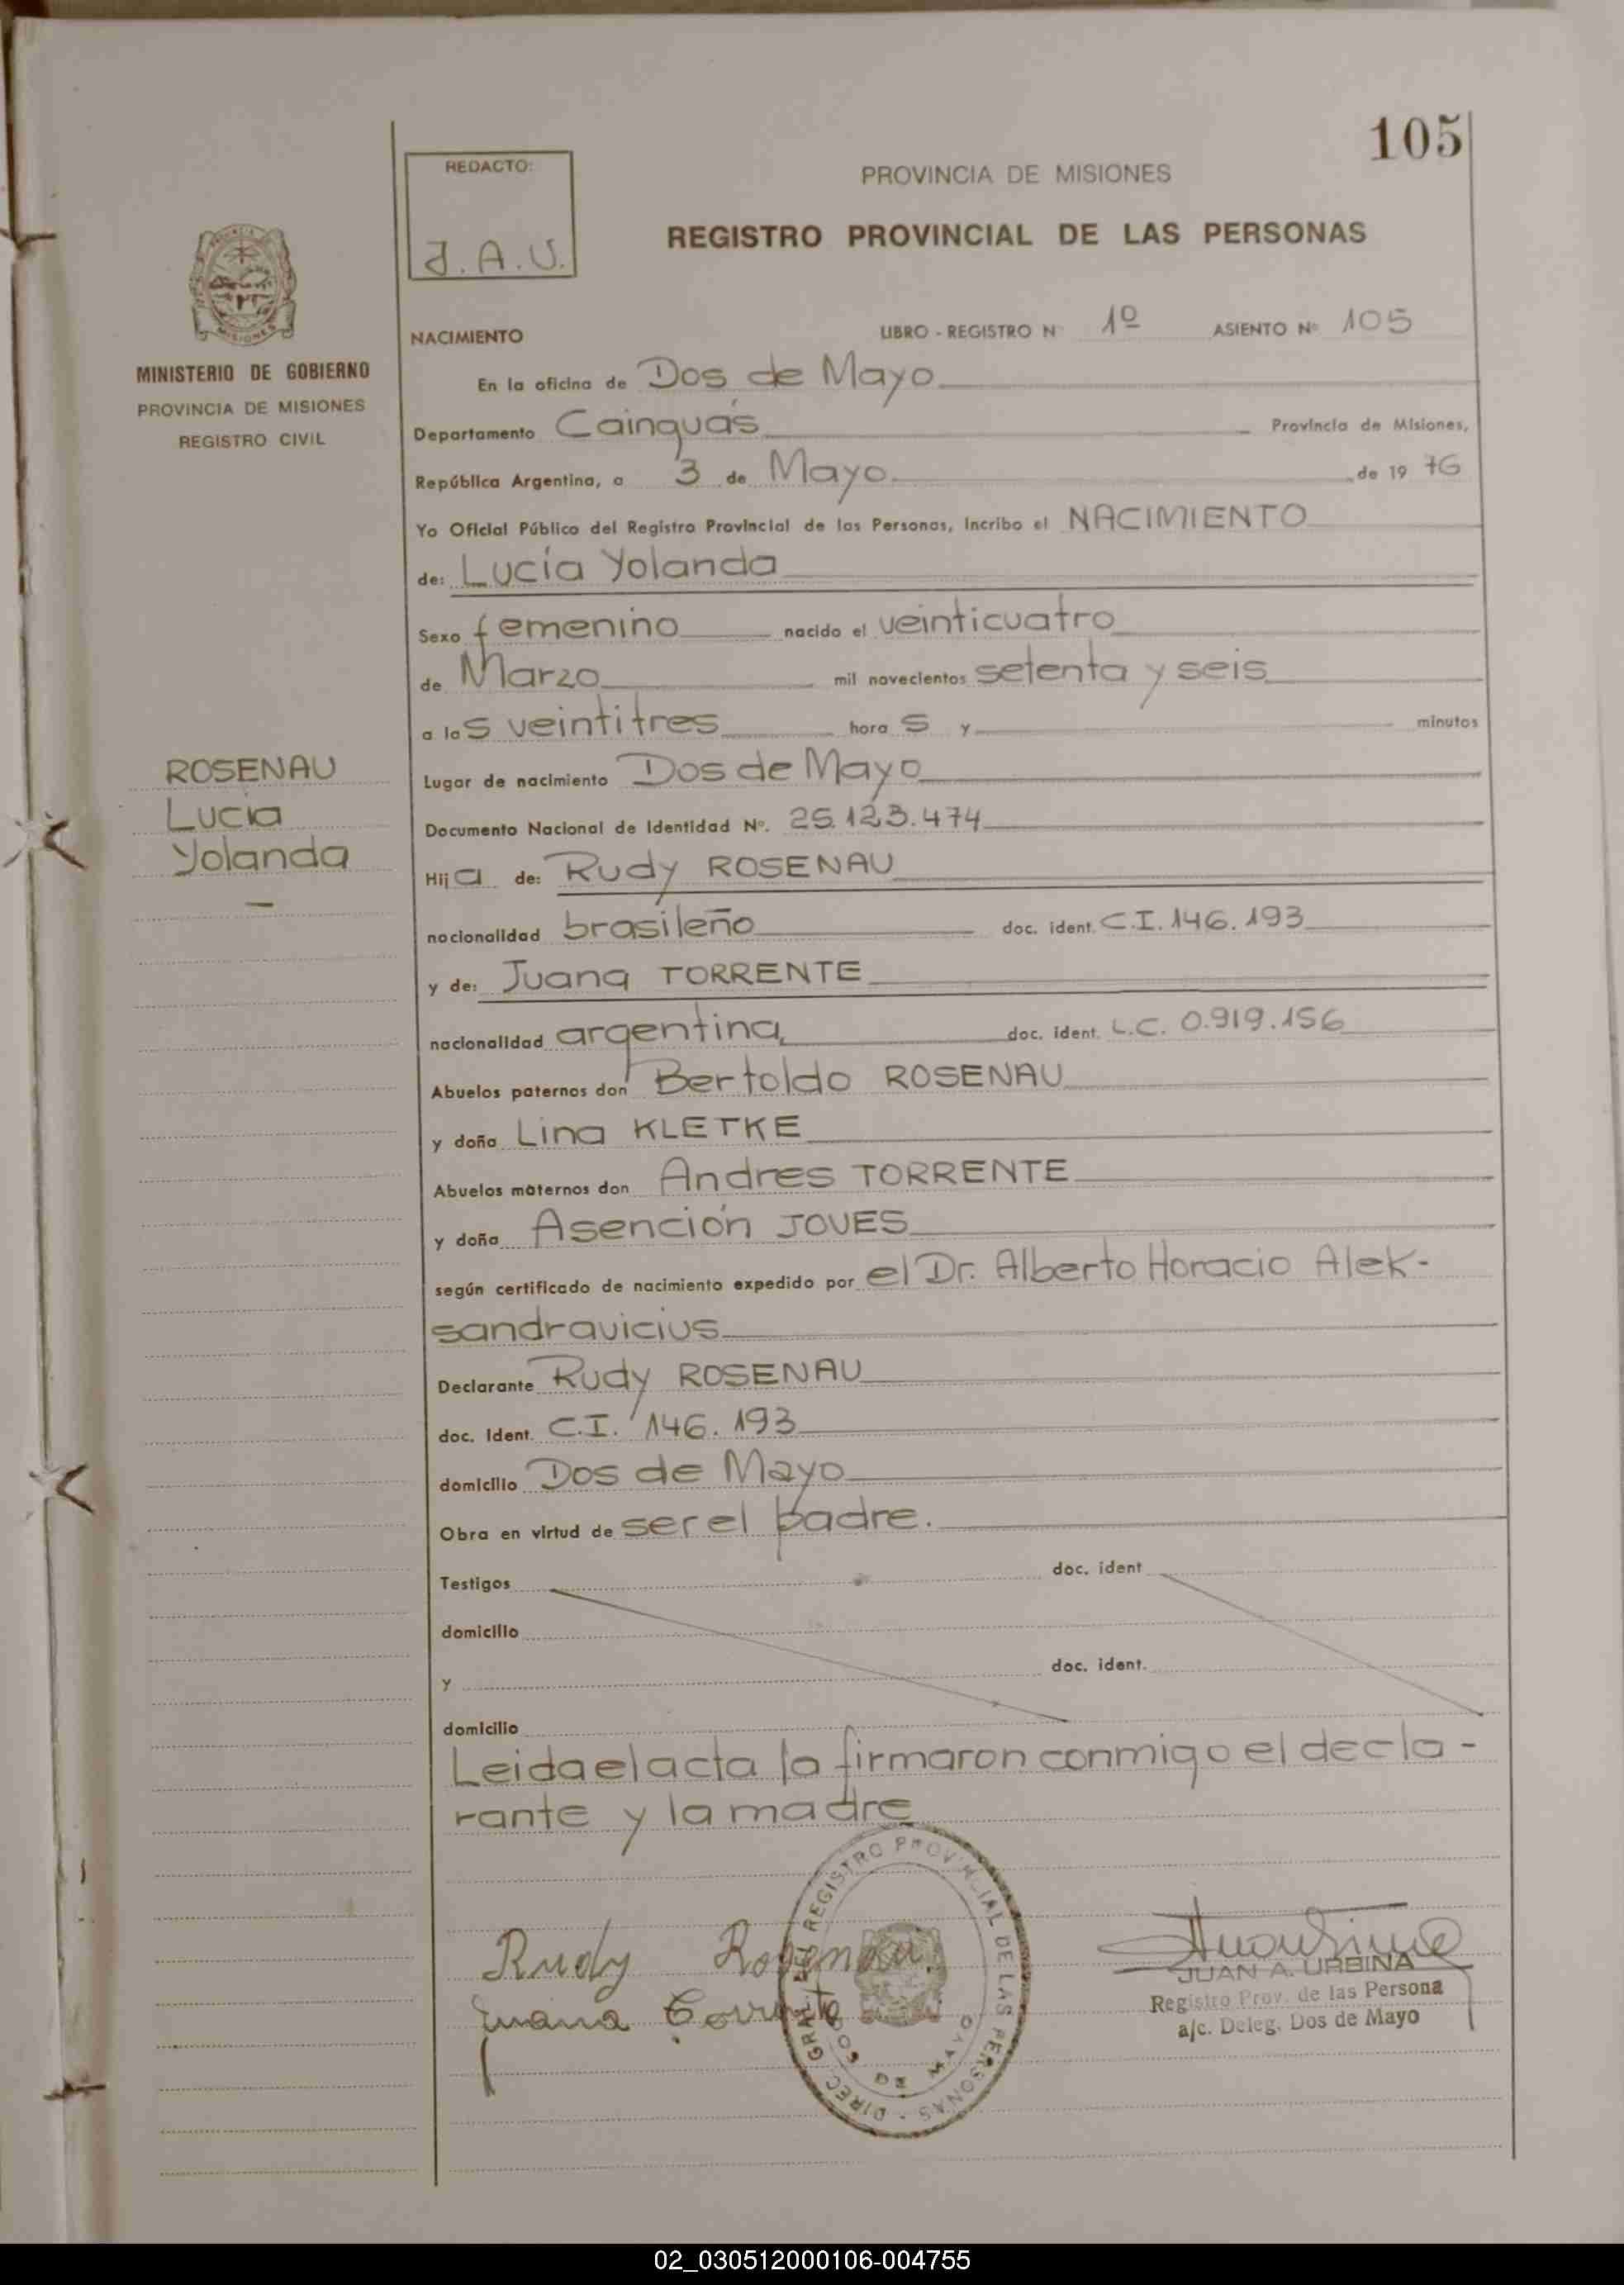 105
REDACTO:
J.A.U.
PROVINCIA DE MISIONES
REGISTRO PROVINCIAL DE LAS PERSONAS
MISIONES
MINISTERIO DE GOBIERNO
PROVINCIA DE MISIONES
REGISTRO CIVIL
ROSENAU
Lucía
Yolanda
NACIMIENTO LIBRO - REGISTRO N° 1º ASIENTO Nº 105
En la oficina de Dos de Mayo
Departamento Cainguás Provincia de Misiones,
República Argentina, a 3 de Mayo de 19 76
Yo Oficial Público del Registro Provincial de las Personas, incribo el NACIMIENTO
de: Lucía Yolanda
Sexo femenino nacido el veinticuatro
de Marzo mil novecientos setenta y seis
a las veintitres horas y minutos
Lugar de nacimiento Dos de Mayo
Documento Nacional de Identidad Nº. 25.123.474
Hija de: Rudy ROSENAU
nacionalidad brasileño doc. ident. C.I. 146.193
y de: Juana TORRENTE
nacionalidad argentina doc. ident. L.C. 0.919.156
Abuelos paternos don Bertoldo ROSENAU
y doña Lina KLETKE
Abuelos maternos don Andres TORRENTE
y doña Asención JOVES
según certificado de nacimiento expedido por el Dr. Alberto Horacio Alek-
sandravicius
Declarante Rudy ROSENAU
doc. Ident. C.I. 146.193
domicilio Dos de Mayo
Obra en virtud de ser el padre.
Testigos doc. ident
domicilio
y doc. ident.
domicilio
Leida el acta la firmaron conmigo el decla-
rante y la madre
Rudy Rosenau
Juana Torrente
DIREC. GRAL. DEL REGISTRO PROVINCIAL DE LAS PERSONAS -
DOS DE MAYO
JUAN A. URBINA
Registro Prov. de las Persona
a/c. Deleg. Dos de Mayo
02_030512000106-004755